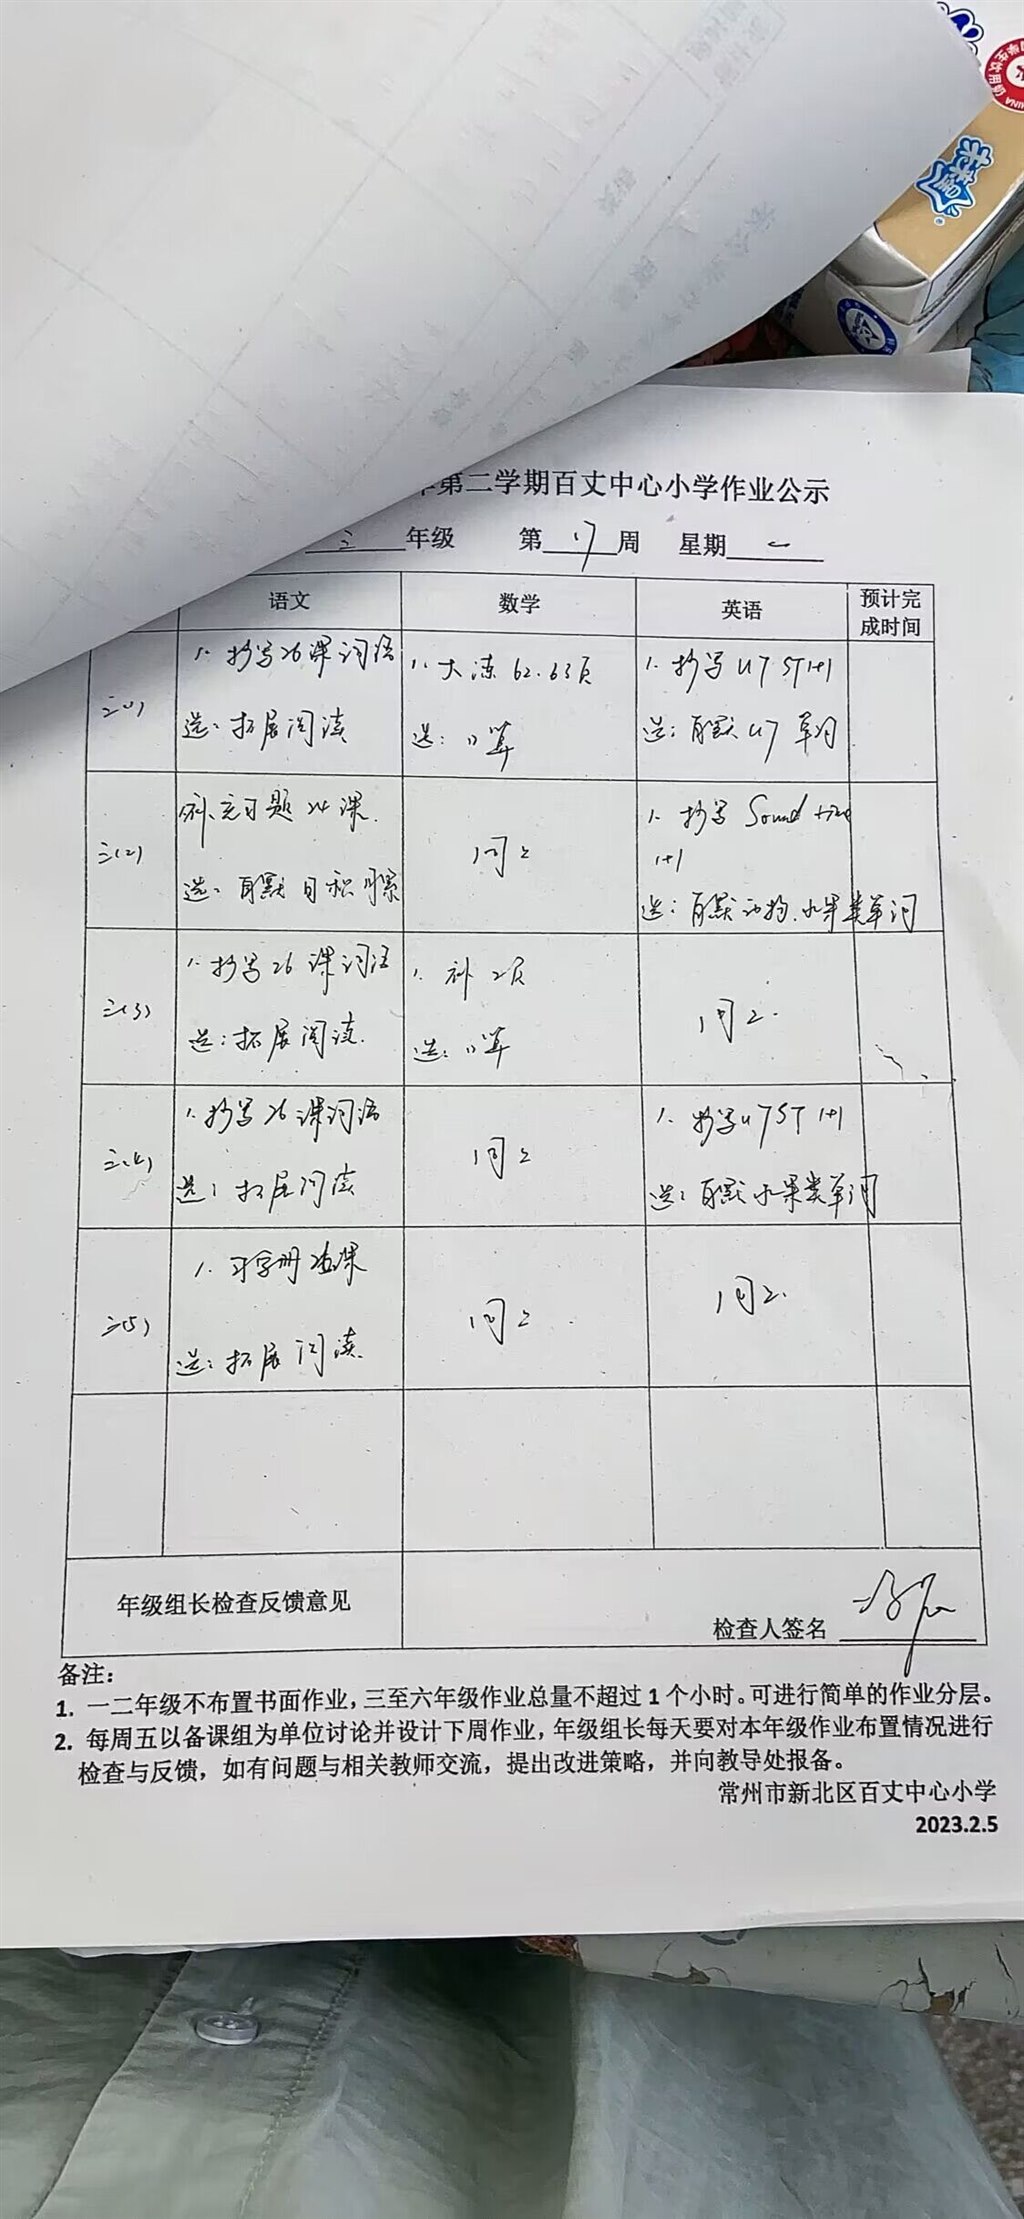 第二学期百丈中心小学作业公示
三年级 第17周 星期一
语文 数学 英语 预计完成时间
三(1)
1. 抄写26课词语
选：拓展阅读
1. 大练 62.63页
选：口算
1. 抄写 U7 ST 1+1
选：自默 U7 单词
三(2)
补充习题 24课.
选：自默日积月累
同上
1. 抄写 Sound time
1+1
选：自默动物.水果类单词
三(3)
1. 抄写26课词语
选：拓展阅读.
1. 补 2页
选：口算
同上.
三(4)
1. 抄写26课词语
选：拓展阅读
同上
1. 抄写U7 ST 1+1
选：自默水果类单词
三(5)
1. 习字册
选：拓展阅读
同上
同上.
年级组长检查反馈意见
检查人签名
备注：
1. 一二年级不布置书面作业，三至六年级作业总量不超过1个小时。可进行简单的作业分层。
2. 每周五以备课组为单位讨论并设计下周作业，年级组长每天要对本年级作业布置情况进行
检查与反馈，如有问题与相关教师交流，提出改进策略，并向教导处报备。
常州市新北区百丈中心小学
2023.2.5